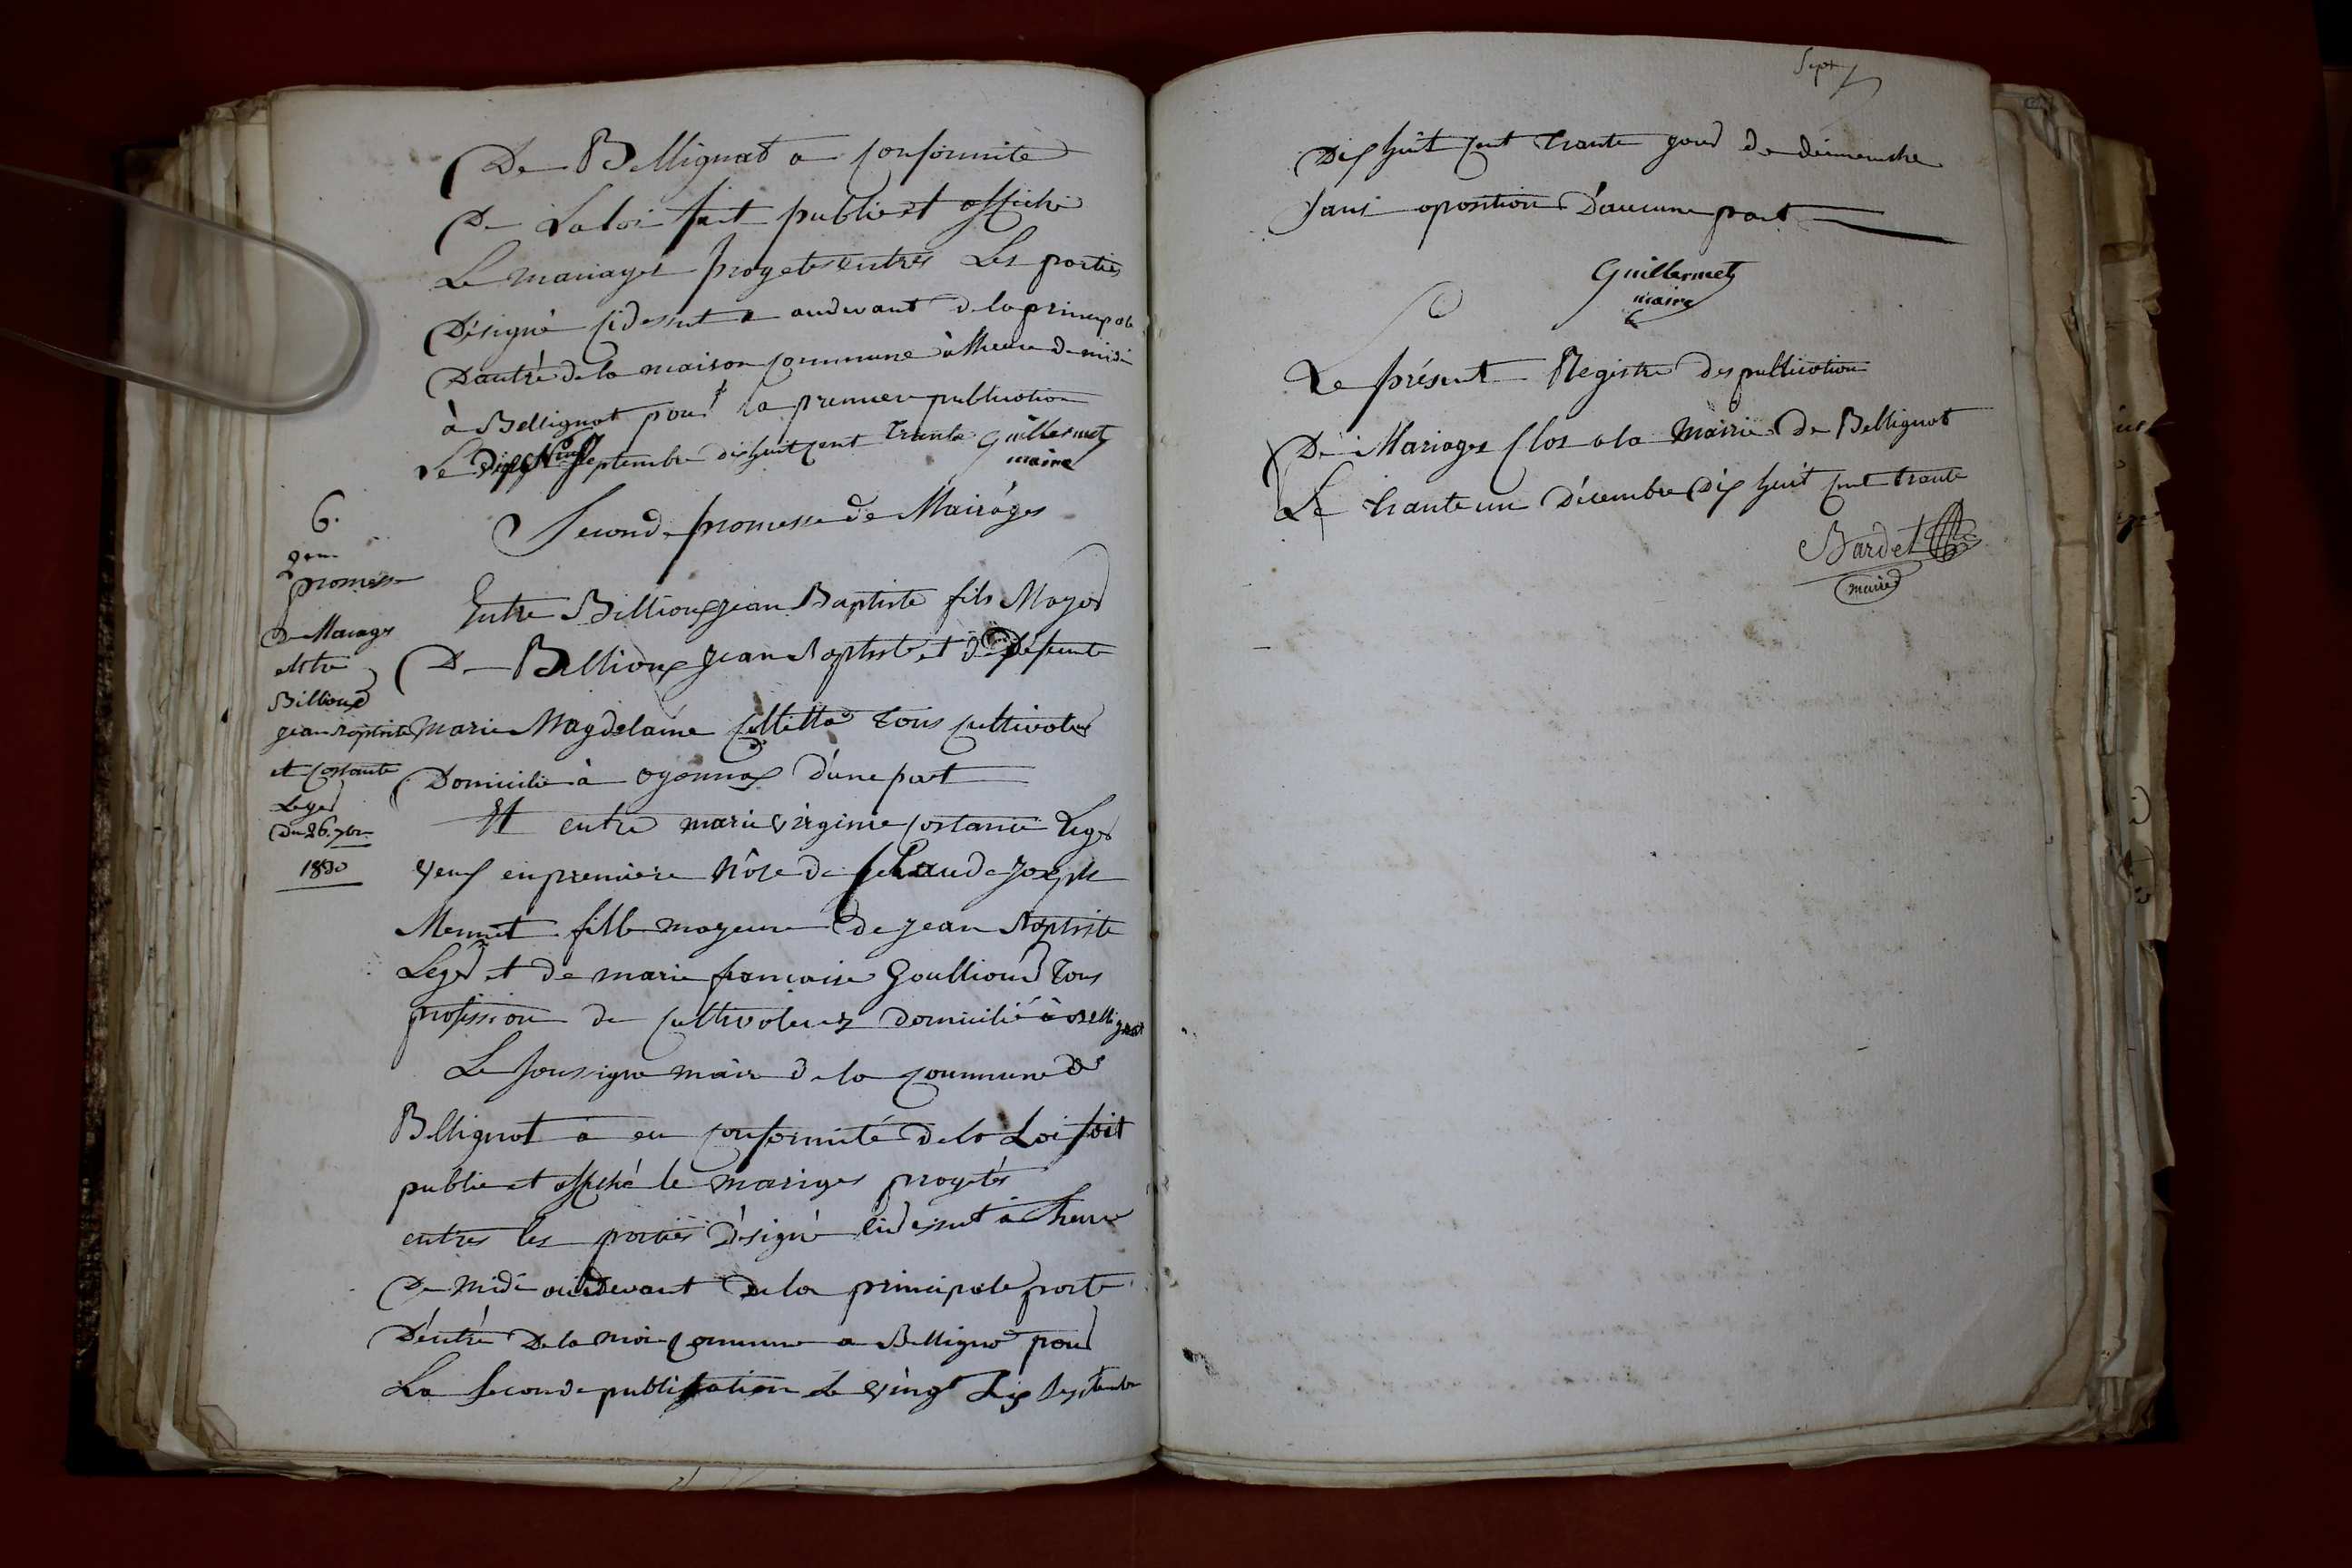 De Bellignat a conformite
De La loi fait publie et affiché
Le mariages progetes entres Les parties
Désigné cidessut a audevant de la principale
D'antré de la maison commune à l'heure de midi
à Bellignat pour la premiere publication
Le Dix Neuf Septembre dix huit cent trante Guillermet
maire
6.
2eme
promesse
De Mariages
entre
Billioud
jean Baptiste
et Costante
Leger
Du 26 7bre
1830
Seconde promesse de Mairàges
Entre Billioux jean Baptiste fils Mayor
De Billioux Jean Baptiste et de défunte
Marie Magdelaine Collettaz tous cultivateur
Domicilié à oyonnax d'une part
Et entre marie Virginie Costance Leger
Veuf en premiere nôse de Claude Joseph
Mermet fille mayeure de jean Baptiste
Leger et de marie francoise Goullioud tous
profission de cultivateurs domicilié à Bellignat
Le soussigne maire de la Commune de
Bellignat a en conformité de la Loi fait
publie et affiché le mariges progetés
entres les parties Désigné cidessut à l'heure
De midi audevant de la principale porte
D'éntré De la mais commune a Bellignat pour
La seconde publication Le Vingt Six Septembre
Sept
Dix huit cent trante jour de deimenche
sans oposition D'aucune part
Guillermet
maire
Le présent Registre des publication
De Mariages Clos a la Mairie De Bellignat
Le trante un Décembre Dix huit cent trante
Bardet
maire